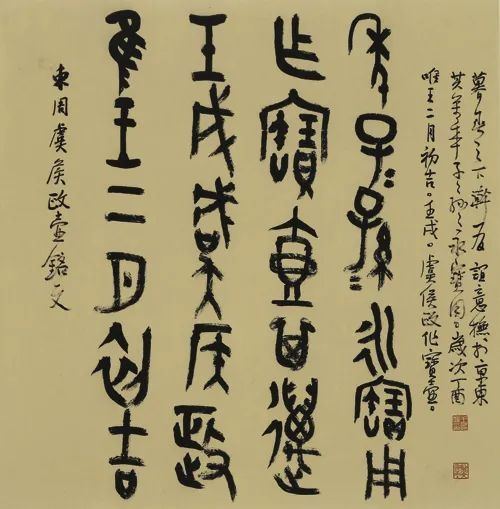 東周虞侯政壺銘文
隹王二月初吉
壬戌虞侯政
乍寶壺其萬
年子=孫=永寶用
唯王二月初吉。壬戌。虞侯政作寶壺。
其萬年子〻孫〻永寶用。歲次丁酉
暮春之下澣 於京東